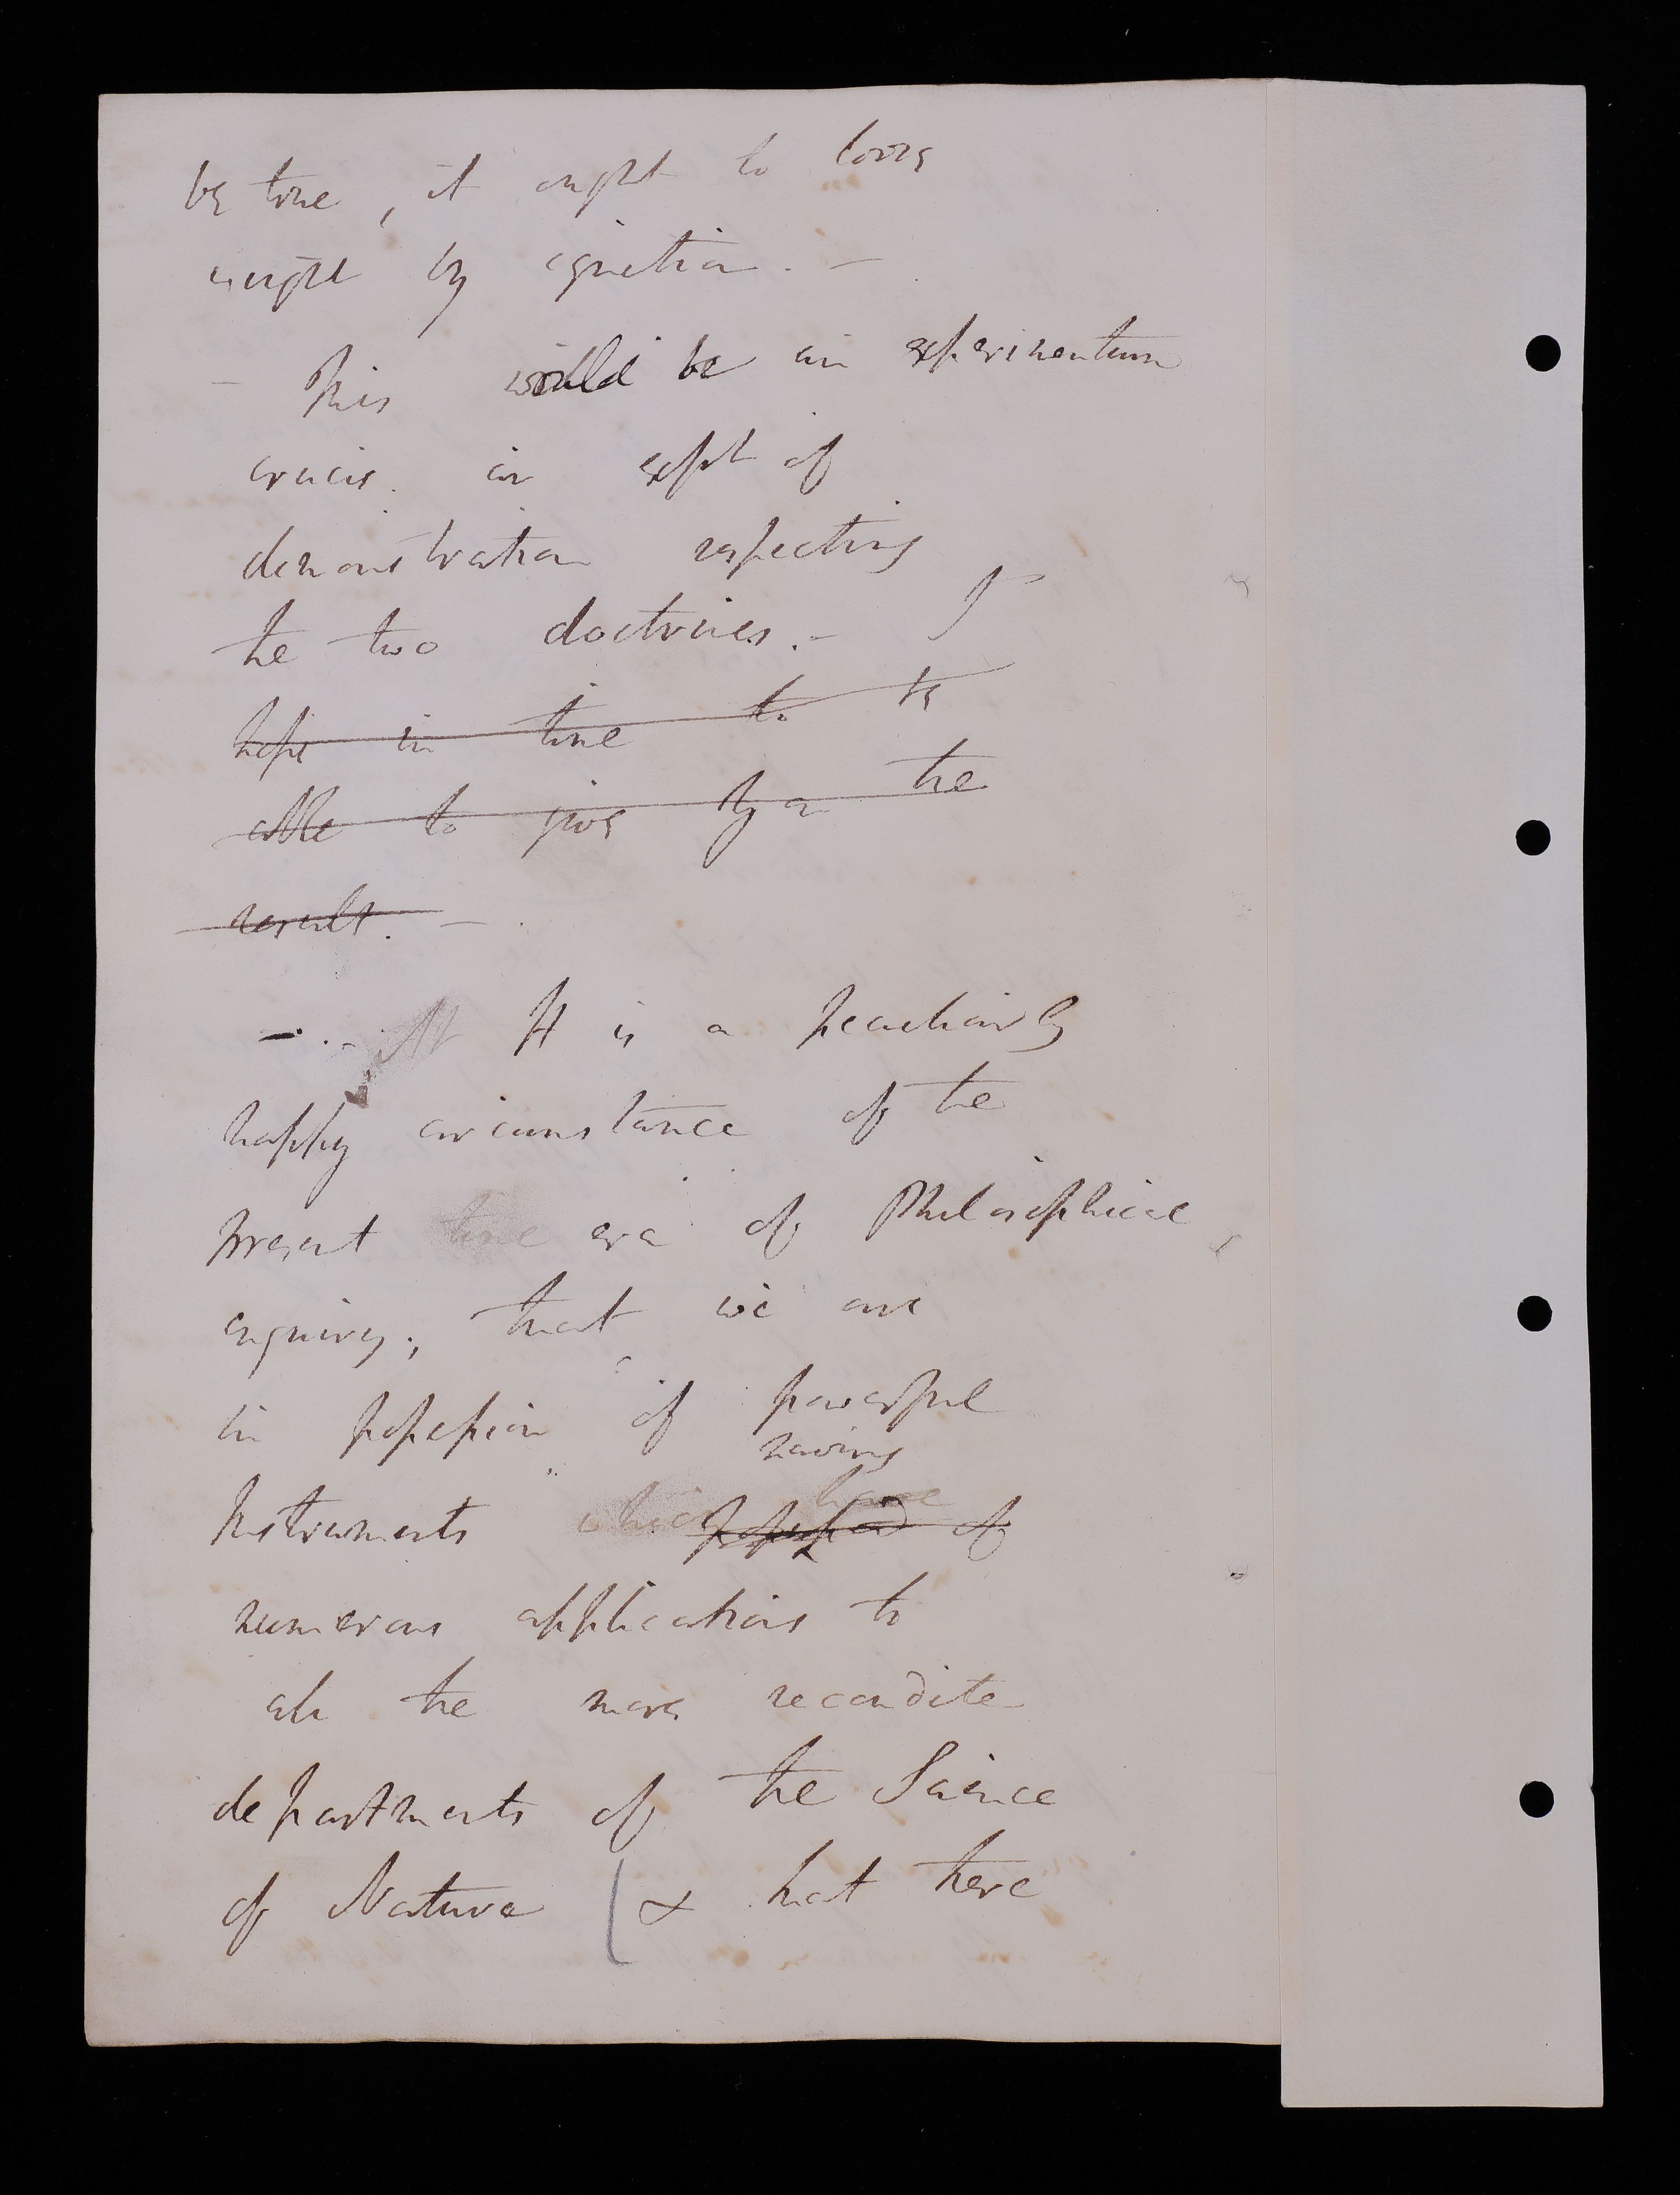 be true, it ought to loose
weight by ignition. —
— This would be an experimentum
crucis. an expt of
demonstration respecting
the two doctrines. — I
hope in time to be
able to give you the
result. —
— It It is a peculiarly
happy circumstance of the
present time era of Philosophical
enquiry; that we are
in possession of powerful
having
Instruments which possessed of
numerous applications to
all the more recondite
departments of the Science
of Nature & that there